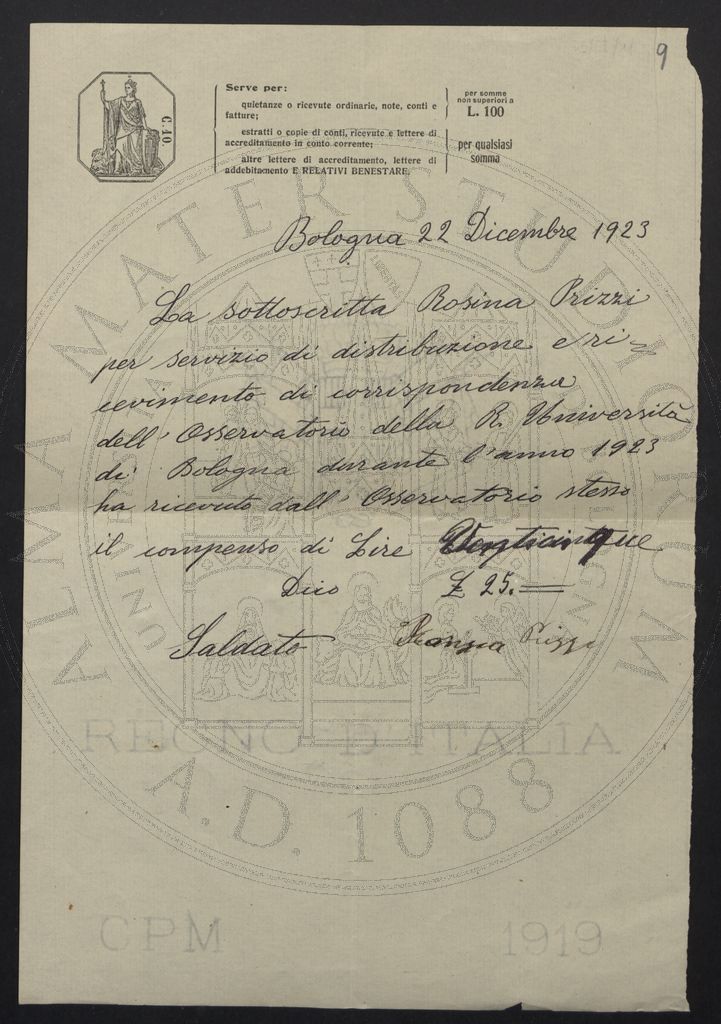 9
C. 10.
Serve per:
quietanze o ricevute ordinarie, note, conti e
fatture;
estratti o copie di conti, ricevute e lettere di
accreditamento in conto corrente;
altre lettere di accreditamento, lettere di
addebitamento E RELATIVI BENESTARE.
per somme
non superiori a
L. 100
per qualsiasi
somma
Bologna 22 Dicembre 1923
La sottoscritta Rosina Prizzi
per servizio di distribuzione e ri-
cevimento di corrispondenza
dell'Osservatorio della R. Università
di Bologna durante l'anno 1923
ha ricevuto dall'Osservatorio stesso
il compenso di Lire Venticinque
Dico £ 25.=
Saldato
ALMA MATER STUDIORUM
A.D. 1088
REGNO D'ITALIA
CPM 1919